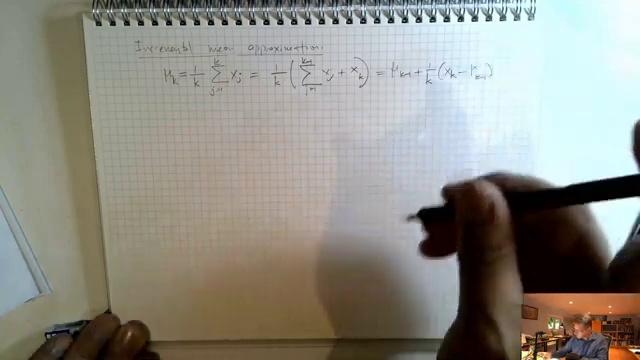 Incremental mean approximation:
μ_k = 1/k ∑_{j=1}^{k} x_j = 1/k ( ∑_{j=1}^{k-1} x_j + x_k ) = μ_{k-1} + 1/k ( x_k − μ_{k-1} )